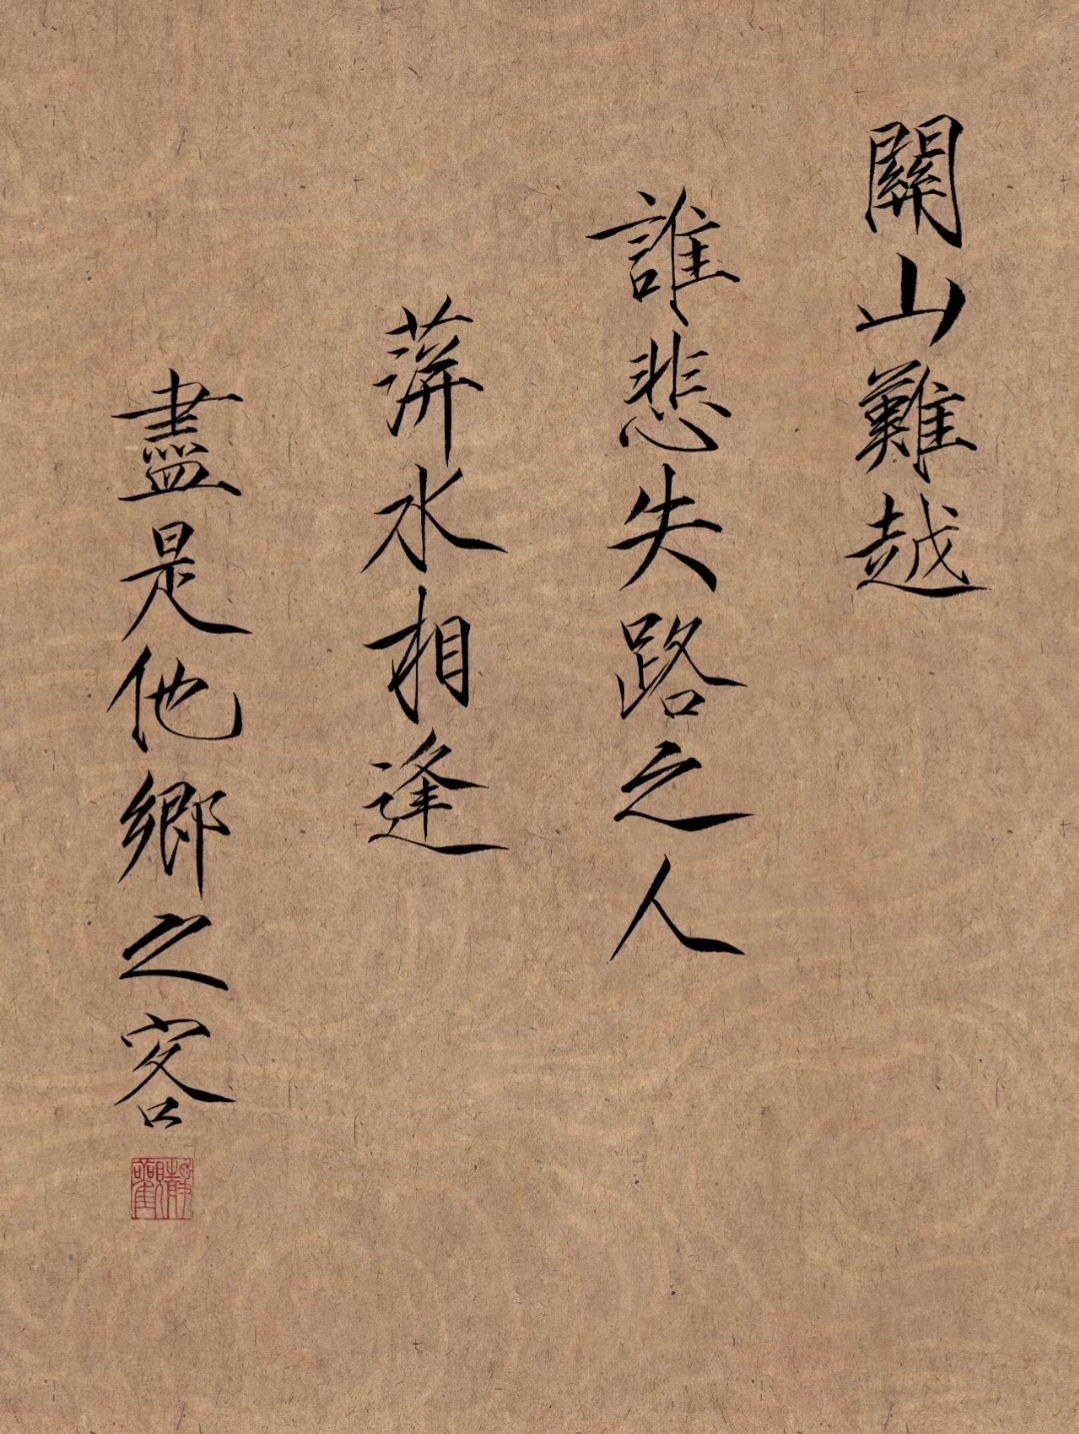 關山難越
誰悲失路之人
蓱水相逢
盡是他鄉之客